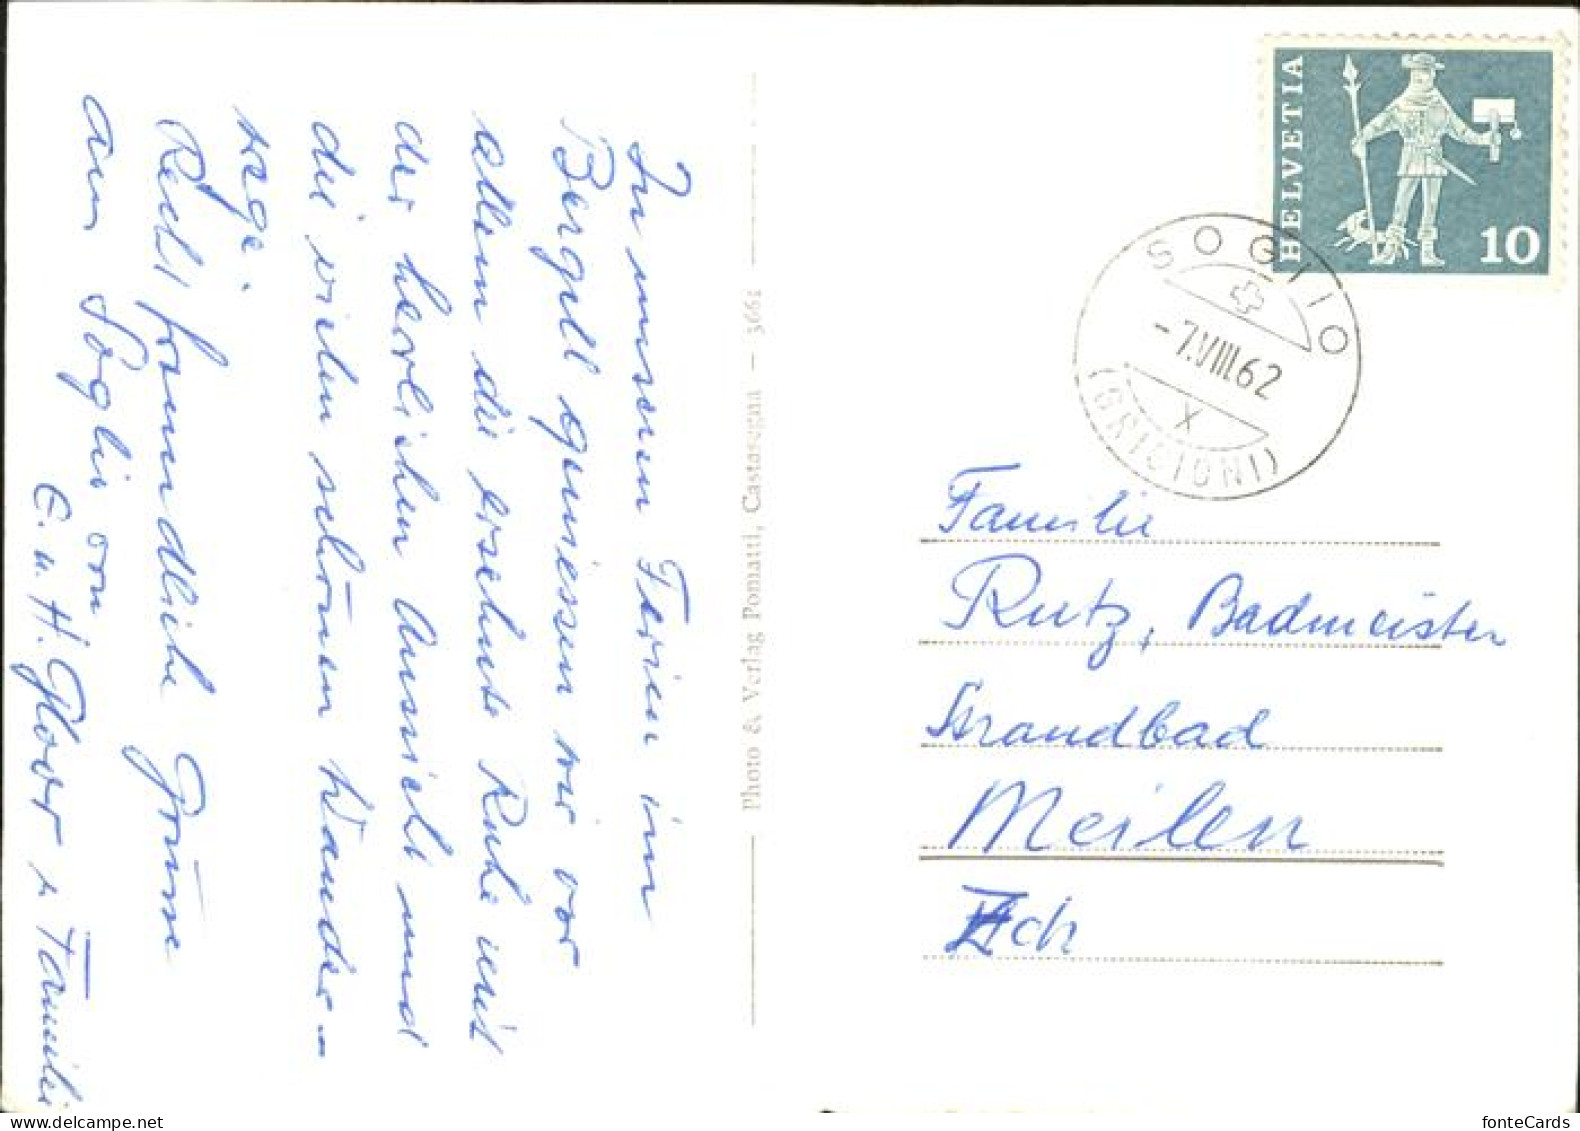 In unseren Ferien im
Bergell geniessen wir vor
allem die ersehnte Ruhe mit
der herrlichen Aussicht und
die vielen schönen Wander-
wege.
Recht freundliche Grüsse
aus Soglio von
E. u. H. u. Familie
Photo & Verlag Pomatti, Castasegna — 3661
HELVETIA
10
SOGLIO
-7.VIII.62
X
(GRIGIONI)
Familie
Rutz, Badmeister
Strandbad
Meilen
Zch
fonteCards